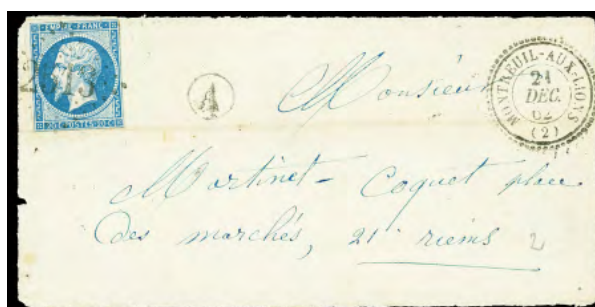 EMPIRE FRANC.
20 C. POSTES 20 C.
A
MONTREUIL-AUX-LIONS
21
DEC.
62
(2)
Monsieur
Martinet-Coquet place
des marchés, 21 rieims
2